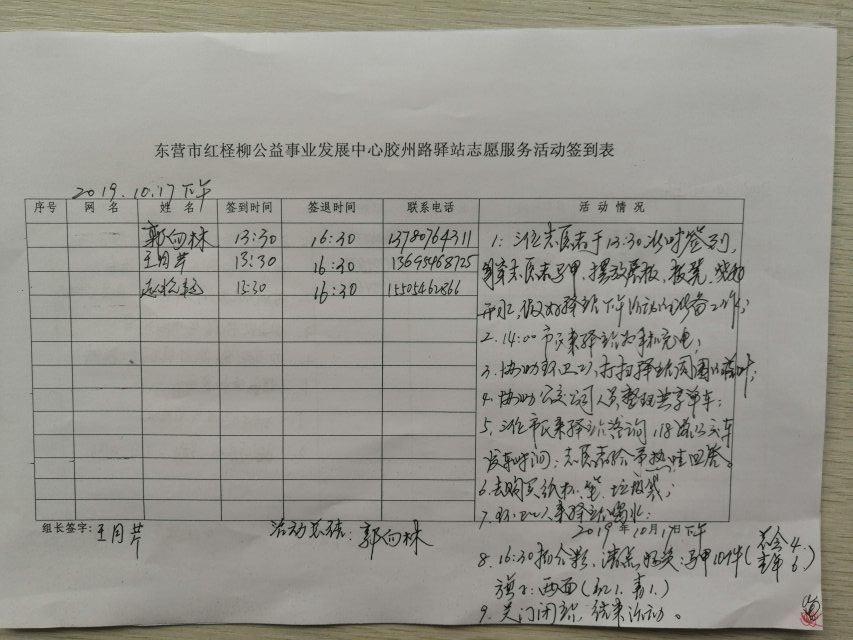 东营市红柽柳公益事业发展中心胶州路驿站志愿服务活动签到表
2019.10.17下午
序号 网 名 姓 名 签到时间 签退时间 联系电话 活 动 情 况
郭向林 13:30 16:30 13780764311
王月芹 13:30 16:30 13695468725
13:30 16:30 15505462866
1: 三位志愿者于13:30准时签到,
穿志愿者马甲、摆放展板、板凳、烧
开水,做好驿站下午活动的准备工作;
2. 14:00市民来驿站为手机充电;
3. 协助环卫工,打扫驿站周围的落叶;
4. 协助公交公司人员整理共享单车;
5. 三位市民来驿站咨询,18路公交车
发车时间,志愿者给予热情回答。
6. 去购买纸杯、笔、垃圾袋;
7. 环卫工人来驿站喝水;
组长签字:王月芹 活动总结:郭向林 2019年10月17日下午
8. 16:30 清点 马甲10件(总会4.
青年6)
旗子:两面(红1、青1.)
9. 关门闭窗,结束活动。